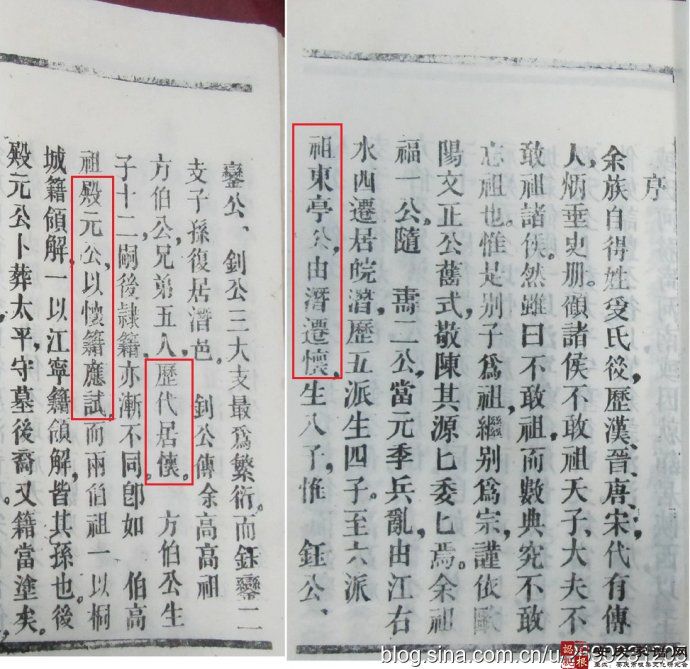 序
余族自得姓受氏後,歷漢晉唐宋,代有傳
人,炳垂史册。顧諸侯不敢祖天子,大夫不
敢祖諸侯。然雖曰不敢祖而數典究不敢
忘祖也。惟是别子爲祖,繼别爲宗,謹依歐
陽文正公舊式,敬陳其源匕委匕焉。余祖
福一公隨 壽二公當元季兵亂,由江右
水西遷居皖濳,歷五派生四子。至六派
祖東亭公由濳遷懷,生八子,惟 鈺公、
鑾公、釗公三大支最爲繁衍。而鈺鑾二
支子孫復居濳邑。 釗公傳余高高祖
方伯公兄弟五人,歷代居懷。 方伯公生
子十二,嗣後隷籍亦漸不同,卽如 伯高
祖殿元公,以懷籍應試,而兩伯祖一以桐
城籍領解,一以江寧籍領解,皆其孫也。後
殿元公卜葬太平,守墓後裔又籍當塗矣。
blog.sina.com.cn